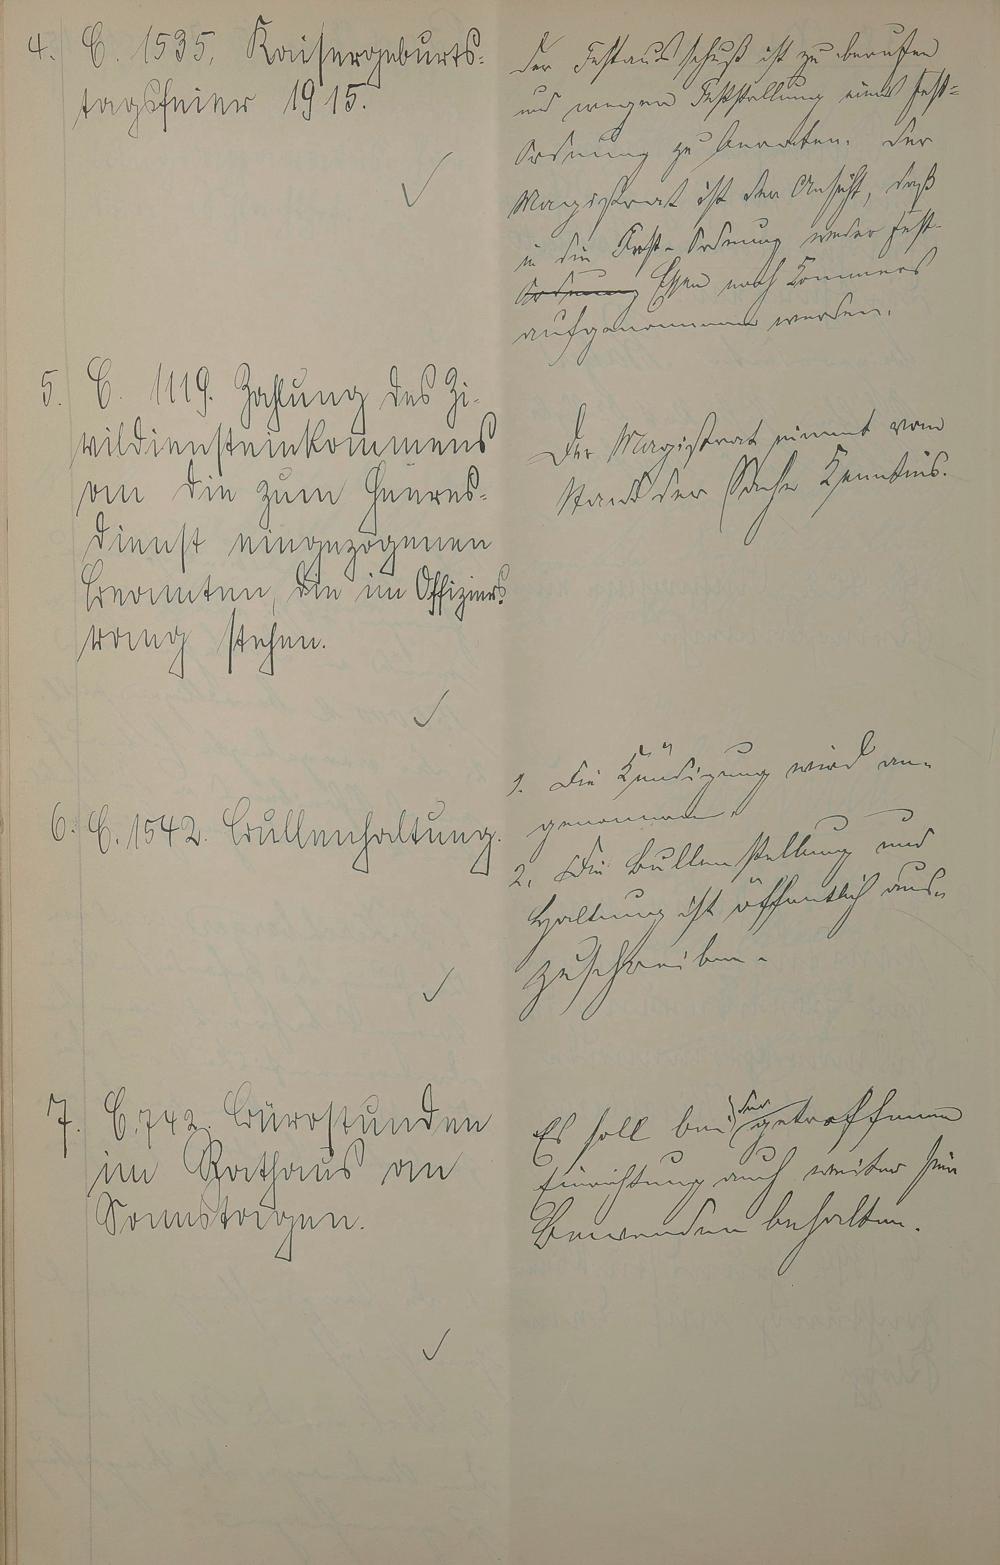 4. C. 1535. Kaisergeburts-
tagsfeier 1915.
Der Festausschuß ist zu berufen
und wegen Feststellung einer Fest-
Ordnung zu beraten. Der
Magistrat ist der Ansicht, daß
in die Fest-Ordnung weder Fest-
Ordnung Essen noch Kommers
aufgenommen werden.
5. C. 1119. Zahlung des Zi-
vildiensteinkommens
an die zum Heeres-
dienst eingezogenen
Beamten, die im Offiziers
rang stehen.
Der Magistrat nimmt vom
Stand der Sache Kenntnis.
6. C. 1542. Bullenhaltung.
1. Die Kündigung wird an-
genommen.
2. Die Bullenstellung und
Haltung ist öffentlich aus-
zuschreiben.
7. C. 742. Bürostunden
im Rathaus an
Sonntagen.
Es soll bei der getroffenen
Einrichtung auch weiter sein
Bewenden behalten.